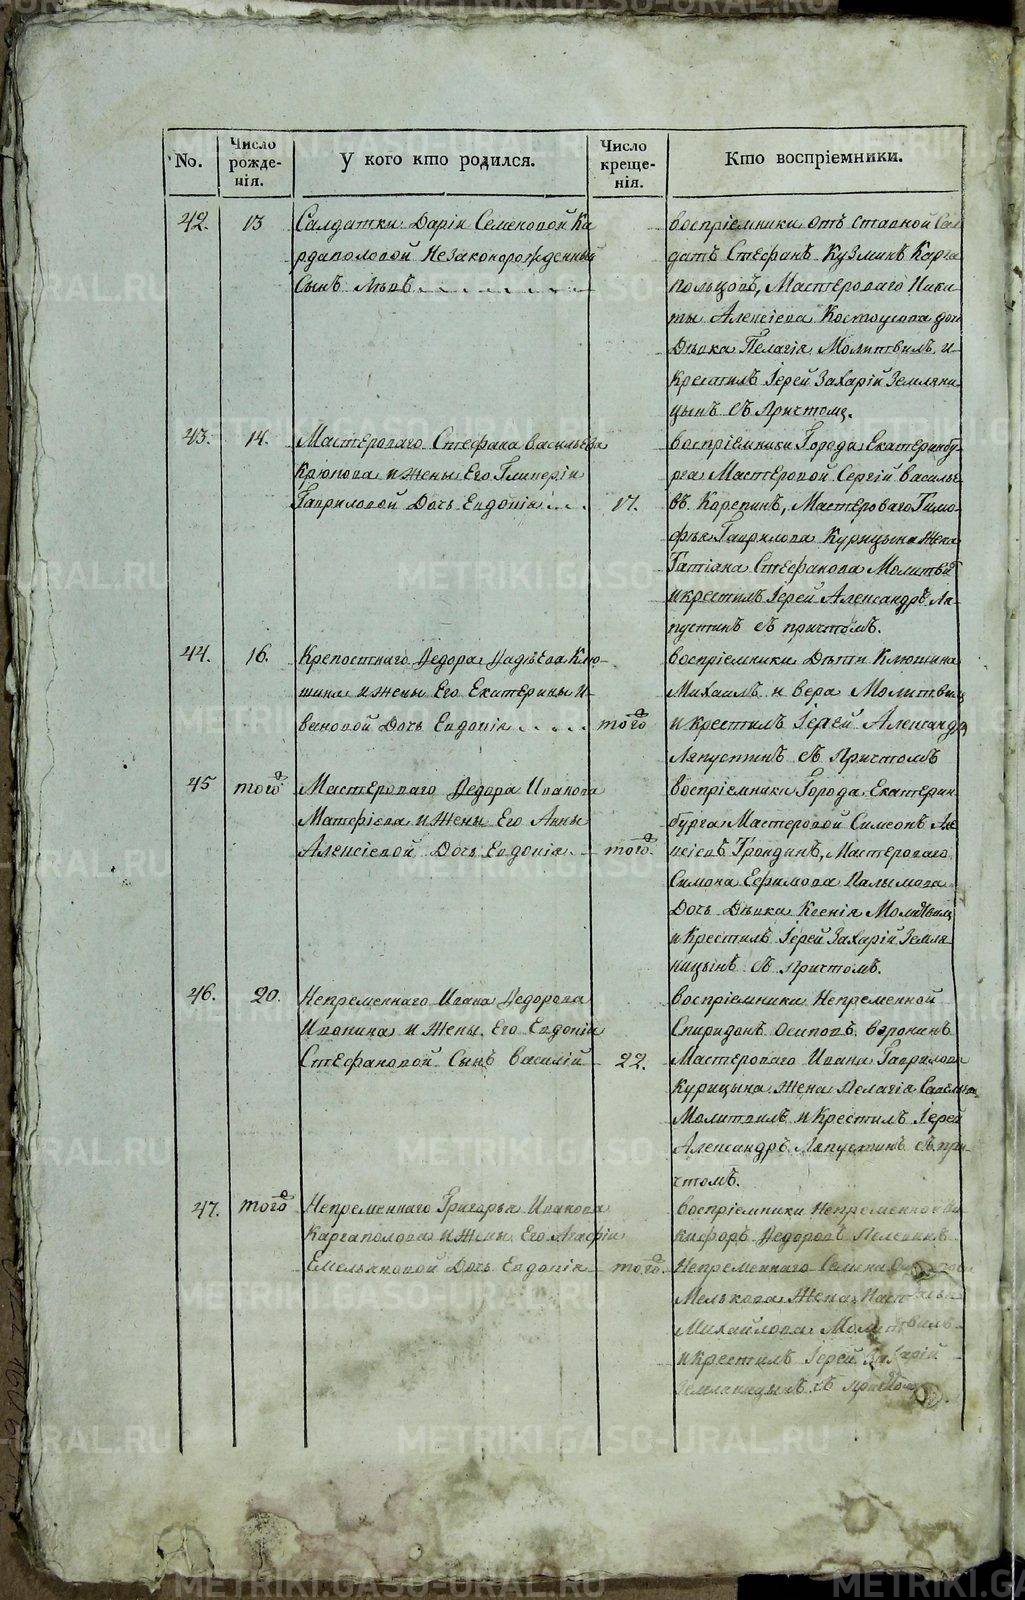 No.
Число рожде-
нія.
У кого кто родился.
Число креще-
нія.
Кто воспріемники.
42. 13
Салдатки Даріи Семеновой Ка
рдаполовой Незаконорожденный
Сынъ Львъ
воспріемники отъ ставной Сал
датъ Стефанъ Кузминъ Карга
польцовъ, Мастероваго Ники
ты Алексіева Костоусова дочь
Дѣвка Пелагія Молитвилъ и
крестилъ Іерей Захарій Земляни
цынъ съ Причтомъ.
43. 14.
Мастероваго Стефана Васильева
Крюкова и Жены Его Гликеріи
Гавриловой Дочь Евдокія
17.
воспріемники Города Екатеринбу
рга Мастеровой Сергій Василье
въ Корепинъ, Мастероваго Тимо
фѣя Гаврилова Курицына Жена
Татіана Стефанова Молитви
и крестилъ Іерей Александръ Ля-
пустинъ съ причтомъ.
44. 16.
Крепостнаго Ѳедора Ѳадѣева Клю-
шина и Жены Его Екатерины И-
вановой Дочь Евдокія
того
воспріемники Дѣти Клюшина
Михаилъ и Вера Молитвилъ
и крестилъ Іерей Александръ
Ляпустинъ съ Причтомъ
45 того
Мастероваго Ѳедора Иванова
Матфіева и Жены Его Анны
Алексіевой Дочь Евдокія
того.
воспріемники Города Екатерин
бурга Мастеровой Симеонъ Але
ксіевъ Грондинъ, Мастероваго
Симона Ефимова Налымова
Дочь Дѣвка Ксенія Молитвилъ
и Крестилъ Іерей Захарій Земля-
ницынъ съ Причтомъ.
46. 20.
Непременнаго Ивана Ѳедорова
Ивонина и Жены Его Евдокіи
Стефановой Сынъ Василій
22.
воспріемники Непременной
Спиридонъ Осиповъ Воронинъ
Мастероваго Ивана Гаврилова
Курицына Жена Пелагія Савельева
Молитвилъ и Крестилъ Іерей
Александръ Ляпустинъ съ при-
чтомъ.
47. того
Непременнаго Григорья Иванова
Каргаполова и Жены Его Агафіи
Емельяновой Дочь Евдокія
того.
воспріемники Непременной Ни
кифоръ Ѳедоровъ
Непременнаго Семена
Мелькова Жена
Михайлова Молитвилъ
и крестилъ Іерей Захарій
Земляницынъ съ причтомъ.
METRIKI.GASO-URAL.RU